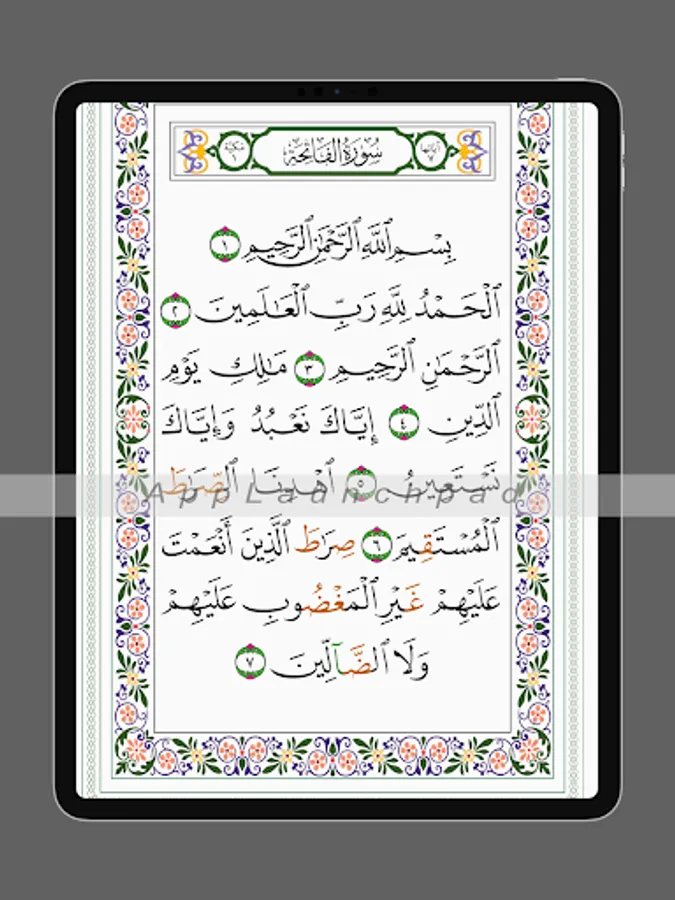 آياتها ٧ سُورَةُ الفَاتِحَةِ مَكيّة ١
بِسْمِ ٱللَّهِ ٱلرَّحْمَٰنِ ٱلرَّحِيمِ ١
ٱلْحَمْدُ لِلَّهِ رَبِّ ٱلْعَٰلَمِينَ ٢
ٱلرَّحْمَٰنِ ٱلرَّحِيمِ ٣ مَٰلِكِ يَوْمِ
ٱلدِّينِ ٤ إِيَّاكَ نَعْبُدُ وَإِيَّاكَ
نَسْتَعِينُ ٥ ٱهْدِنَا ٱلصِّرَٰطَ
AppLaunchpad
ٱلْمُسْتَقِيمَ ٦ صِرَٰطَ ٱلَّذِينَ أَنْعَمْتَ
عَلَيْهِمْ غَيْرِ ٱلْمَغْضُوبِ عَلَيْهِمْ
وَلَا ٱلضَّآلِّينَ ٧